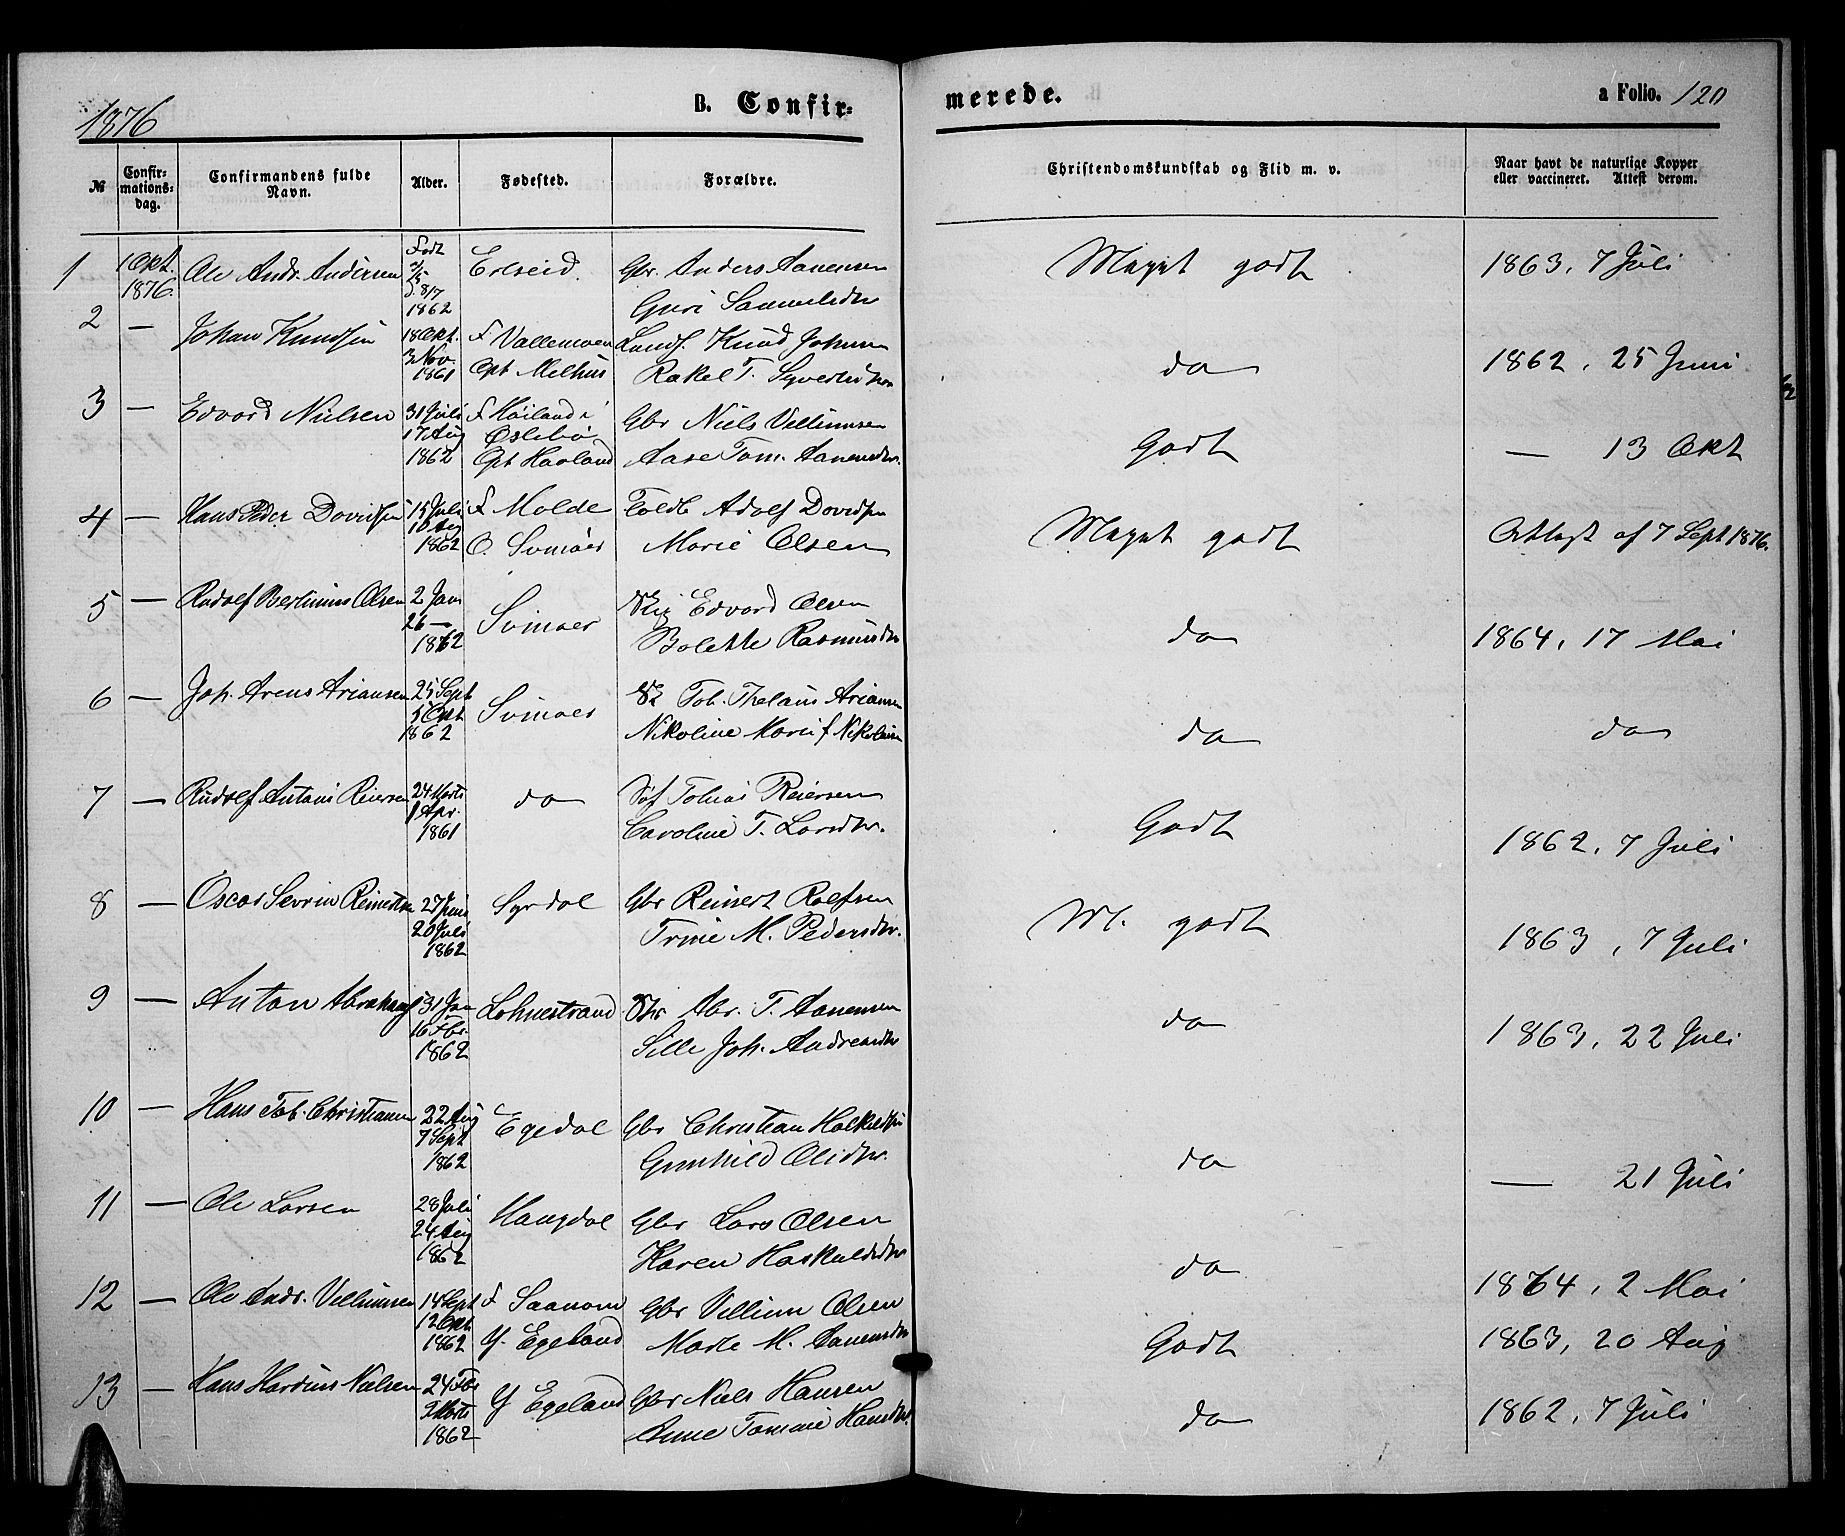 1876
B. Confir-
merede.
a Folio. 120
№ Confir-mations-dag. Confirmandens fulde Navn. Alder. Fødested. Forældre. Christendomskundskab og Flid m. v. Naar havt de naturlige Kopper eller vaccineret. Attest derom.
1 1 Okt. 1876. Ole Andr. Andersen Født 1862 Gbr. Anders Aanensen Meget godt 1863, 7 Juli
Guri Samuelsdtr
2 — Johan Knudsen 18 Okt. F Vallemoen Knud Johnsen do 1862, 25 Juni
3 Nov. 1861 Opt Melhus Rakel T. Syvertsdtr
3 — Edvard Nielsen 31 Juli F Høiland i Gbr Niels Villumsen Godt — 13 Okt
17 Aug Øslebø
1862 Opt Havland Aase Tom. Aanensdtr.
4 — Hans Peder Davidsen 15 Juli F Molde Toldb Adolf Davidsen Meget godt Attest af 7 Sept 1876.
10 Aug 1862 O. Svinøer Marie Olsen
5 — Rudolf Bertinius Olsen 2 Jan Svinøer Edvard Olsen do 1864, 17 Mai
26 — 1862 Bolette Rasmusdtr
6 — Joh. Arens Ariansen 25 Sept Svinøer Tob. Thelaus Ariansen do do
5 Okt 1862 Nikoline Marie f Nikolaisen
7 — Rudolf Antoni Reiersen 24 Marts do Tobias Reiersen Godt 1862, 7 Juli
1 Apr. 1861 Caroline T. Larsdtr.
8 — Oscar Sevrin Reinertsen 27 Juni Syrdal Gbr Reinert Rolfsen M. godt 1863, 7 Juli
20 Juli 1862 Trine M. Pedersdtr.
9 — Anton Abrahams 31 Jan Lohnestrand Abr. T. Aanensen do 1863, 22 Juli
16 Fbr. 1862 Sille Joh. Andreasdtr
10 — Hans Tob. Christiansen 22 Aug Egedal Gbr Christian Haskuldsen do — 21 Juli
7 Sept 1862 Gunhild Olsdtr.
11 — Ole Larsen 28 Juli Haugdal Gbr Lars Olsen do 1864, 2 Mai
24 Aug 1862 Karen Haskuldsdtr
12 — Ole Andr. Villumsen 14 Sept F Saanom Gbr Villum Olsen Godt 1863, 20 Aug
12 Okt 1862 Y. Egeland Marte M. Aanensdtr
13 — Hans Hardius Nielsen 24 Fbr Y Egeland Gbr Niels Hansen do 1862, 7 Juli
2 Marts 1862 Anne Tomine Hansdtr.